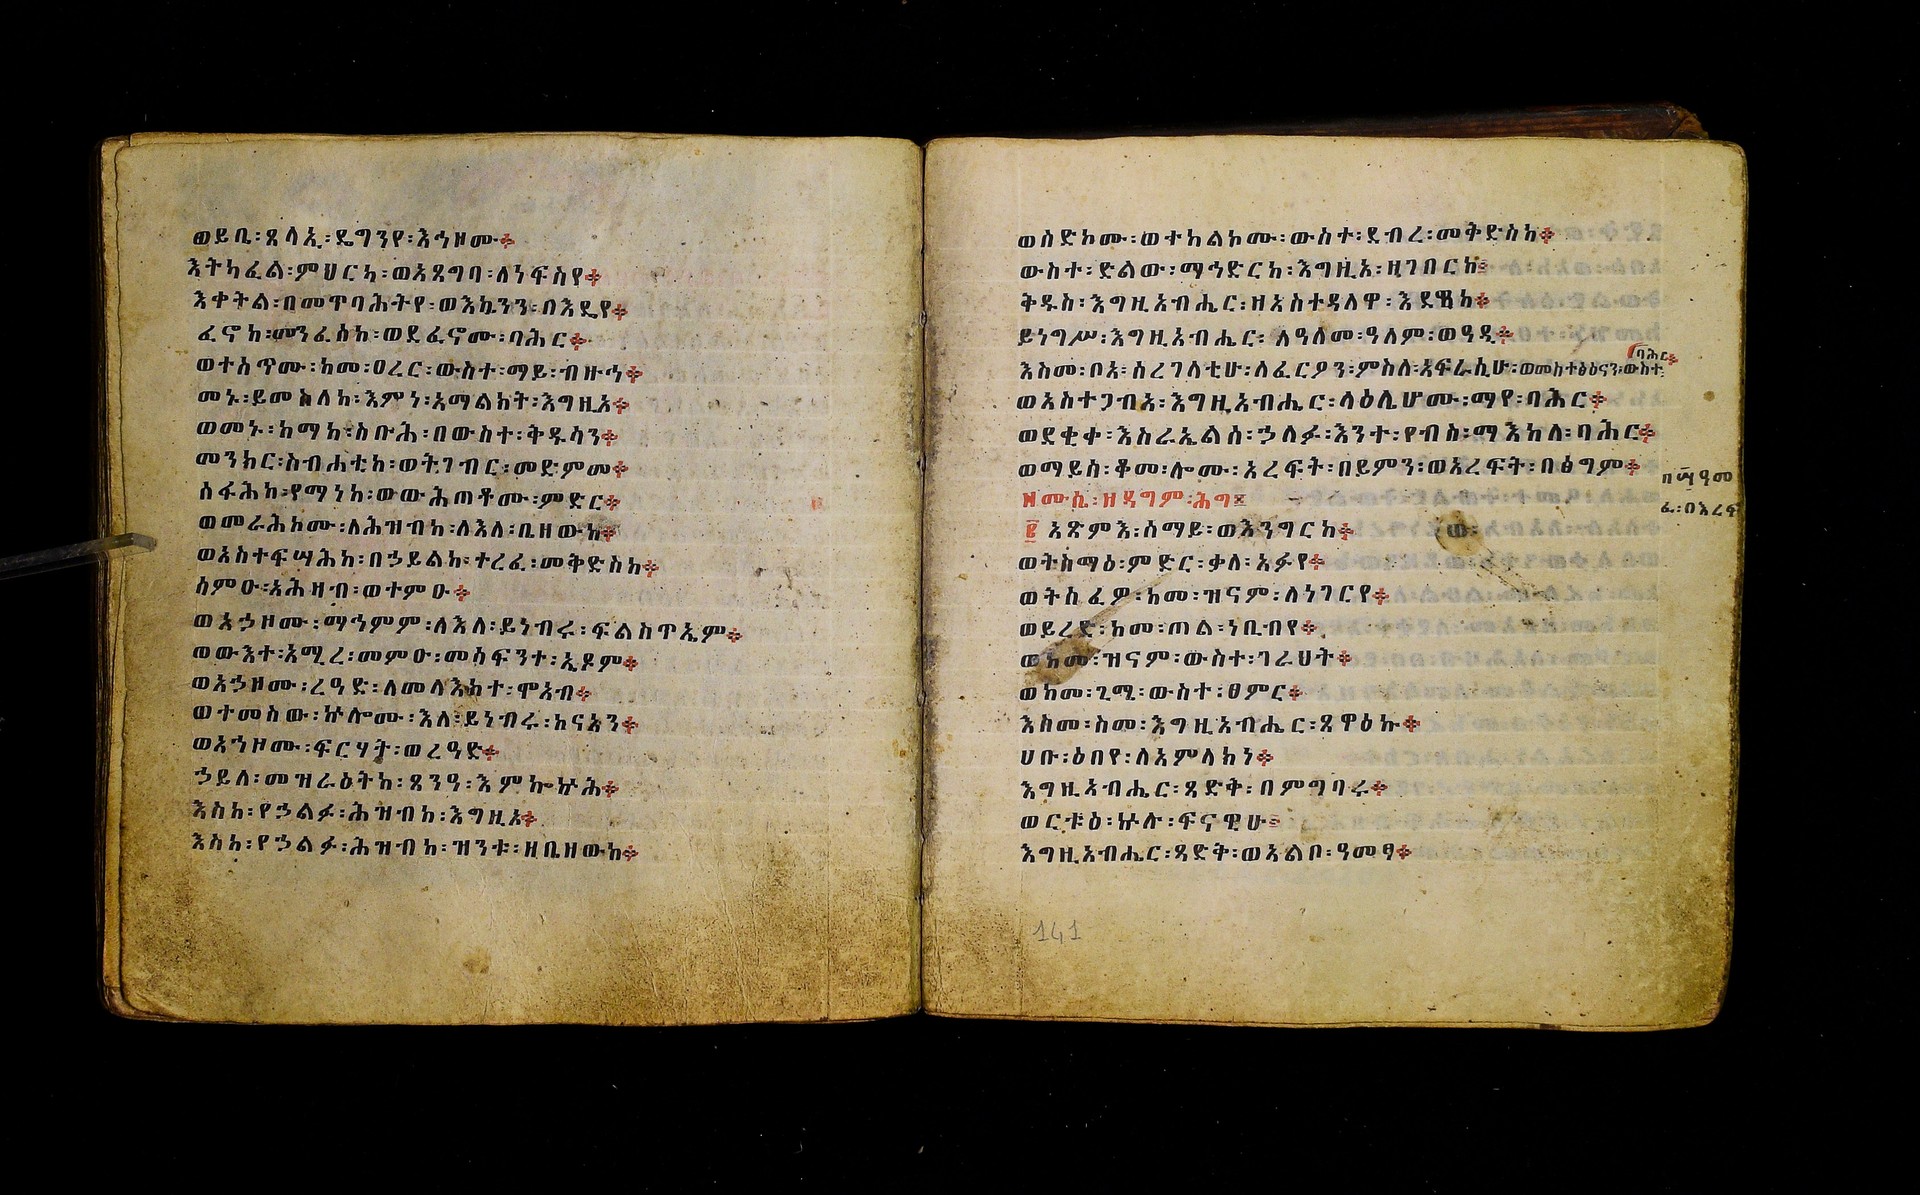 ወይቤ፡ጸላኢ፡ዴግንየ፡እኅዞሙ፨
እትካፈል፡ምህርካ፡ወአጸግባ፡ለነፍስየ፨
እቀትል፡በመጥባሕትየ፡ወእኴንን፡በእዴየ፨
ፈኖከ፡መንፈሰከ፡ወደፈኖሙ፡ባሕር፨
ወተሰጥሙ፡ከመ፡ዐረር፡ውስተ፡ማይ፡ብዙኅ፨
መኑ፡ይመስለከ፡እምነ፡አማልክት፡እግዚአ፨
ወመኑ፡ከማከ፡ስቡሕ፡በውስተ፡ቅዱሳን፨
መንክር፡ስብሐቲከ፡ወትገብር፡መድምመ፨
ሰፋሕከ፡የማነከ፡ወውሕጠቶሙ፡ምድር፨
ወመራሕከሙ፡ለሕዝብከ፡ለእለ፡ቤዘውከ፨
ወአስተፍሣሕከ፡በኃይልከ፡ተረፈ፡መቅድስከ፨
ሰምዑ፡አሕዛብ፡ወተምዑ፨
ወአኃዞሙ፡ማኅምም፡ለእለ፡ይነብሩ፡ፍልስጥኤም፨
ወውእተ፡አሚረ፡መምዑ፡መሳፍንተ፡ኤዶም፨
ወአኃዞሙ፡ረዓድ፡ለመላእክተ፡ሞአብ፨
ወተመስወ፡ኵሎሙ፡እለ፡ይነብሩ፡ከናአን፨
ወአኀዞሙ፡ፍርሃት፡ወረዓድ፨
ኃይለ፡መዝራዕትከ፡ጸንዓ፡እምኰኵሕ፨
እስከ፡የኃልፉ፡ሕዝብከ፡እግዚአ፨
እስከ፡የኃልፉ፡ሕዝብከ፡ዝንቱ፡ዘቤዘውከ፨
ወስድኮሙ፡ወተከልኮሙ፡ውስተ፡ደብረ፡መቅድስከ፨
ውስተ፡ድልው፡ማኅድርከ፡እግዚአ፡ዘገበርከ፨
ቅዱስ፡እግዚአብሔር፡ዘአስተዳለዋ፡እደዊከ፨
ይነግሥ፡እግዚአብሔር፡ለዓለመ፡ዓለም፡ወዓዲ፨
እስመ፡ቦአ፡ሰረገላቲሁ፡ለፈርዖን፡ምስለ፡አፍራሲሁ፡ወመስተፅዕናን፡ውስተ፡
ባሕር፨
ወአስተጋብአ፡እግዚአብሔር፡ላዕሌሆሙ፡ማየ፡ባሕር፨
ወደቂቀ፡እስራኤልስ፡ኃለፉ፡እንተ፡የብስ፡ማእከለ፡ባሕር፨
ወማይስ፡ቆመ፡ሎሙ፡አረፍት፡በይምን፡ወአረፍት፡በፅግም፨
ዘሙሴ፡ዘዳግም፡ሕግ
፪ አጽምእ፡ሰማይ፡ወእንግርከ፨
ወትስማዕ፡ምድር፡ቃለ፡አፉየ፨
ወትሰፈዎ፡ከመ፡ዝናም፡ለነገርየ፨
ወይረድ፡ከመ፡ጠል፡ነቢብየ፨
ወከመ፡ዝናም፡ውስተ፡ገራህት፨
ወከመ፡ጊሜ፡ውስተ፡ፀምር፨
እስመ፡ስመ፡እግዚአብሔር፡ጸዋዕኩ፨
ሀቡ፡ዕበየ፡ለአምላክነ፨
እግዚአብሔር፡ጻድቅ፡በምግባሩ፨
ወርቱዕ፡ኵሉ፡ፍናዊሁ፨
እግዚአብሔር፡ጻድቅ፡ወአልቦ፡ዓመፃ፨
141